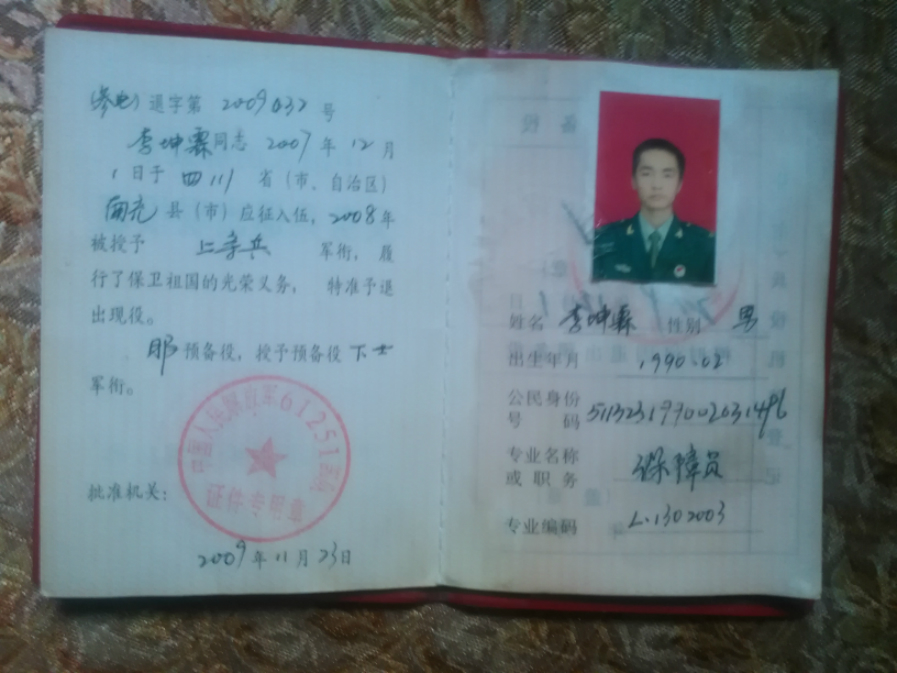 退字第 2009032 号
李坤霖同志 2007年12月
1日于 四川 省（市、自治区）
南充县（市）应征入伍，2008年
被授予 上等兵 军衔，履
行了保卫祖国的光荣义务， 特准予退
出现役。
服预备役，授予预备役 下士
军衔。
中国人民解放军61251部队
证件专用章
批准机关：
2009年11月23日
姓名 李坤霖 性别 男
出生年月 1990.02
公民身份
号 码
专业名称
或 职 务 保障员
专业编码 L.1302003